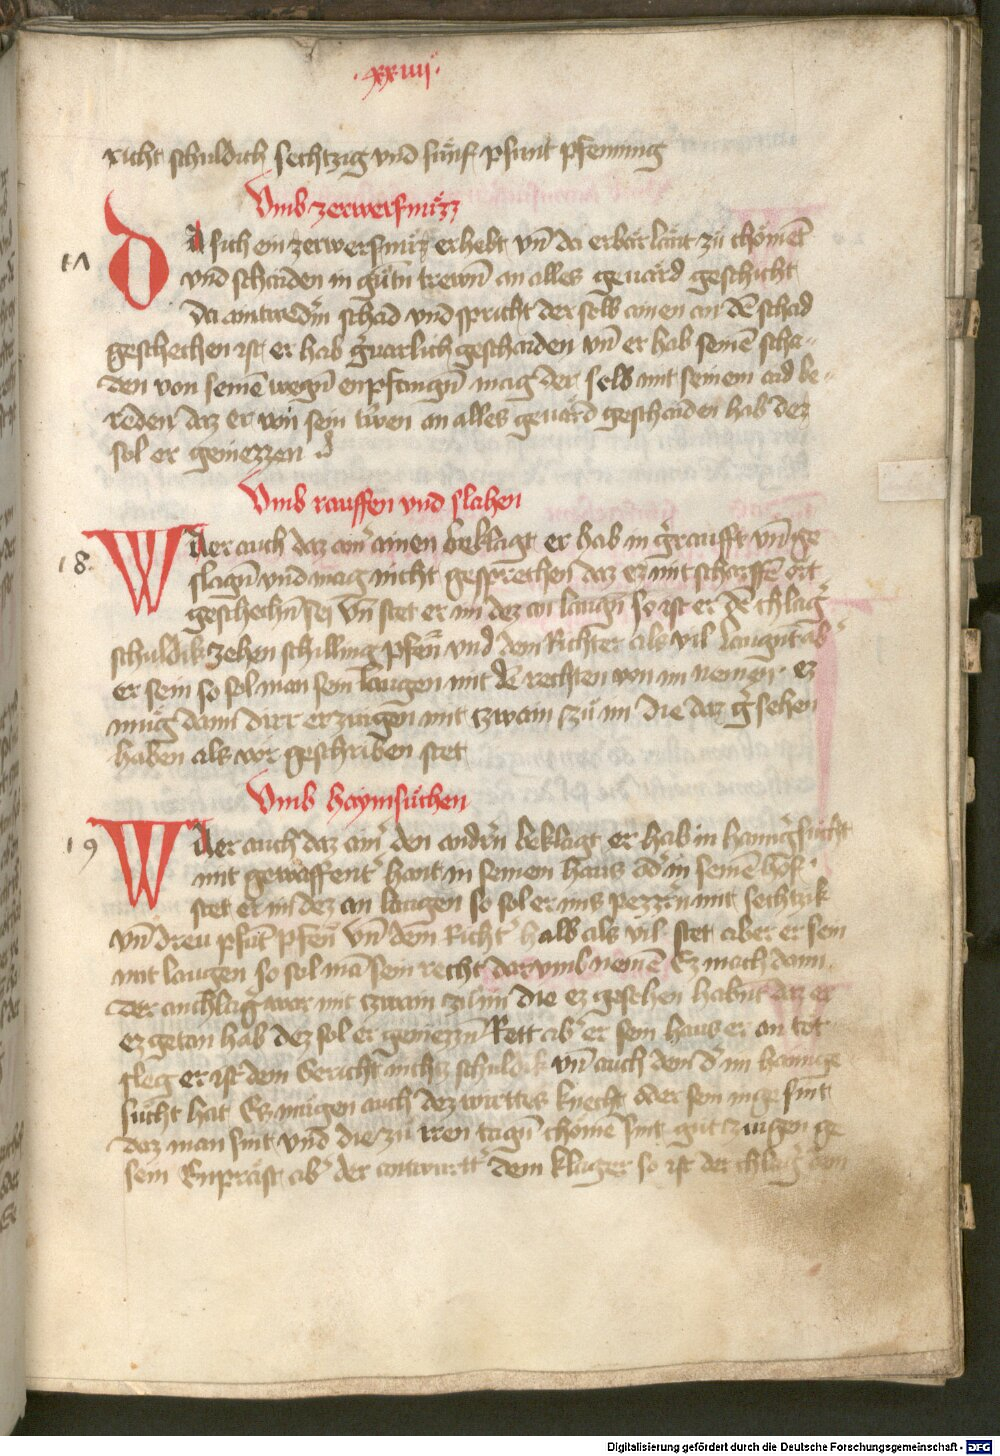 ·xxiiii·
richt schuldich sechtzig vnd fúnf pfunt pfenning
Vmb zerwerfnúzz
17
DA sich ein zerwerfnúz erhebt vn̄ da erbár láut zú chömet
vnd schaiden in gůtn̄ trewn̄ an alles geuárd geschicht
da aintwedˀm schad vnd spricht der selb ainen an dē schad
geschechen ist er hab gˀuarlich geschaiden vn̄ er hab seinē scha-
den von seinē wegn̄ enpfangn̄ mag der selb mit seinem aid be-
reden daz er von sein trwen an alles geuárd geschaiden hab dez
sol er geniezzen
Vmb rauffen vnd slahen
18.
WEr auch daz ainˀ ainen beklagt er hab in gˀraufft vn̄ ge
slagn̄ vnd mag nicht gesprechen daz ez mit scharffē ort
geschechn̄ sei vn̄ stet er im dez an laugn̄ so ist er dē chlagˀ
schuldik zehen schilling pfen̄ vnd dem Richter als vil Laugnt abˀ
er sein so sol man sein laugen mit dē rechten von im nemen· ez
múg dann dirr erzaigen mit zwain zú im die daz gˀsehen
haben als vor geschriben stet
Vmb haymsůchen
19
WEr auch daz ainˀ den andˀn beklagt er hab in haimgˀsucht
mit gewaffentˀ hant in seinem haus odˀ in seinē hof·
stet er im dez an laugen so sol er ims pezzˀn mit sechtzik
vn̄ dreu pfūt pfen̄ vn̄ dem Richtˀ halb als vil stet aber er sein
mit laugen so sol mā sein recht darvmb nemē Ez mach dann
der anchlagˀ war mit zwain zů im die ez gesehen habnt daz er
ez getan hab dez sol er geniezzn̄ Rett abˀ er sein haus er an tot
sleg er ist dem Gericht nichtz schuldik vn̄ auch dem dˀ im haimge
sucht hat Ez múgen auch dez wirttes knecht oder sein inge sint
daz man sint vnd die zů iren tagn̄ chomē sint gůt zaigen ge
sein Enprist abˀ der antwurttˀ dem klager so ist der chlagˀ dem
Digitalisierung gefördert durch die Deutsche Forschungsgemeinschaft - DFG